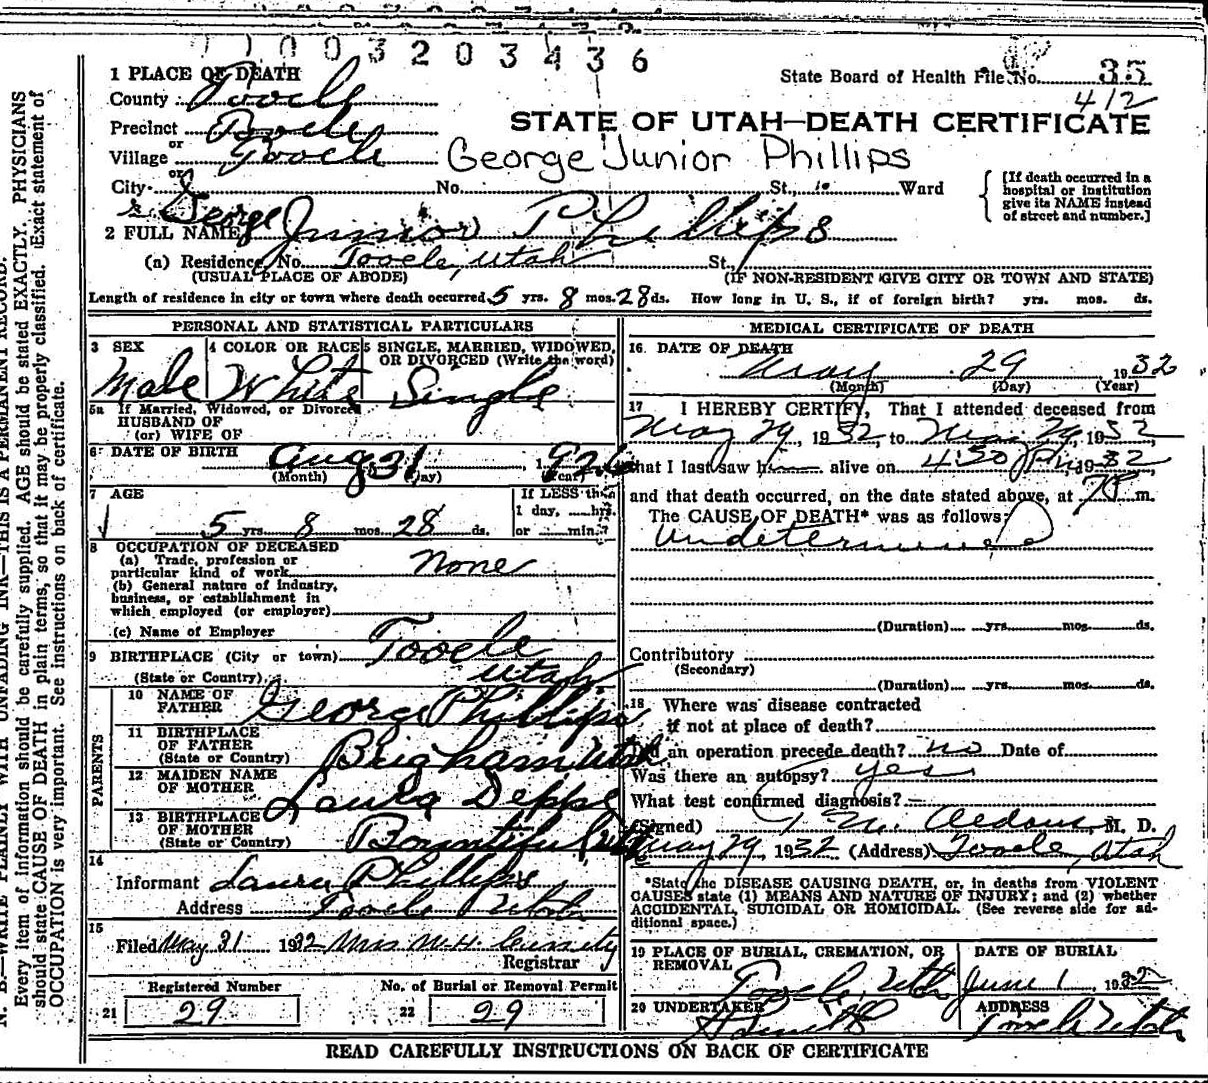 1 0 0 3 2 0 3 4 3 6
1 PLACE OF DEATH
State Board of Health File No. 35
412
County Tooele
Precinct Tooele
or
Village Tooele
STATE OF UTAH—DEATH CERTIFICATE
George Junior Phillips
or
City No. St., Ward
[If death occurred in a hospital or institution give its NAME instead of street and number.]
2 FULL NAME George Junior Phillips
(a) Residence, No. Tooele, Utah St.
(USUAL PLACE OF ABODE) (IF NON-RESIDENT GIVE CITY OR TOWN AND STATE)
Length of residence in city or town where death occurred 5 yrs. 8 mos. 28 ds. How long in U. S., if of foreign birth? yrs. mos. ds.
PERSONAL AND STATISTICAL PARTICULARS
3 SEX
Male
4 COLOR OR RACE
White
5 SINGLE, MARRIED, WIDOWED, OR DIVORCED (Write the word)
Single
5a If Married, Widowed, or Divorced
HUSBAND OF
(or) WIFE OF
6 DATE OF BIRTH Aug 31, 1926
(Month) (Day) (Year)
7 AGE
5 yrs. 8 mos. 28 ds.
If LESS than
1 day, hrs.
or min.?
8 OCCUPATION OF DECEASED
(a) Trade, profession or
particular kind of work None
(b) General nature of industry,
business, or establishment in
which employed (or employer)
(c) Name of Employer
9 BIRTHPLACE (City or town) Tooele
(State or Country) Utah
PARENTS
10 NAME OF FATHER George Phillips
11 BIRTHPLACE OF FATHER (State or Country) Brigham Utah
12 MAIDEN NAME OF MOTHER Laura Deppe
13 BIRTHPLACE OF MOTHER (State or Country) Bountiful Utah
14
Informant Laura Phillips
Address Tooele Utah
15
Filed May 31 1932 Mrs M. H.
Registrar
Registered Number
21 29
No. of Burial or Removal Permit
22 29
MEDICAL CERTIFICATE OF DEATH
16 DATE OF DEATH
May 29 1932
(Month) (Day) (Year)
17 I HEREBY CERTIFY, That I attended deceased from
May 29, 1932 to May 29, 1932,
that I last saw him alive on 4:50 Pm 1932
and that death occurred, on the date stated above, at 7 P m.
The CAUSE OF DEATH* was as follows:
Undetermined
(Duration) yrs. mos. ds.
Contributory
(Secondary)
(Duration) yrs. mos. ds.
18 Where was disease contracted
if not at place of death?
Did an operation precede death? no Date of
Was there an autopsy? yes
What test confirmed diagnosis?
(Signed) M. D.
May 29, 1932 (Address) Tooele, Utah
*State the DISEASE CAUSING DEATH, or, in deaths from VIOLENT
CAUSES state (1) MEANS AND NATURE OF INJURY; and (2) whether
ACCIDENTAL, SUICIDAL OR HOMICIDAL. (See reverse side for ad-
ditional space.)
19 PLACE OF BURIAL, CREMATION, OR REMOVAL
Tooele, Utah
DATE OF BURIAL
June 1, 1932
20 UNDERTAKER
ADDRESS
Tooele Utah
READ CAREFULLY INSTRUCTIONS ON BACK OF CERTIFICATE
N. B.—WRITE PLAINLY WITH UNFADING INK—THIS IS A PERMANENT RECORD.
Every item of information should be carefully supplied. AGE should be stated EXACTLY. PHYSICIANS
should state CAUSE OF DEATH in plain terms, so that it may be properly classified. Exact statement of
OCCUPATION is very important. See instructions on back of certificate.